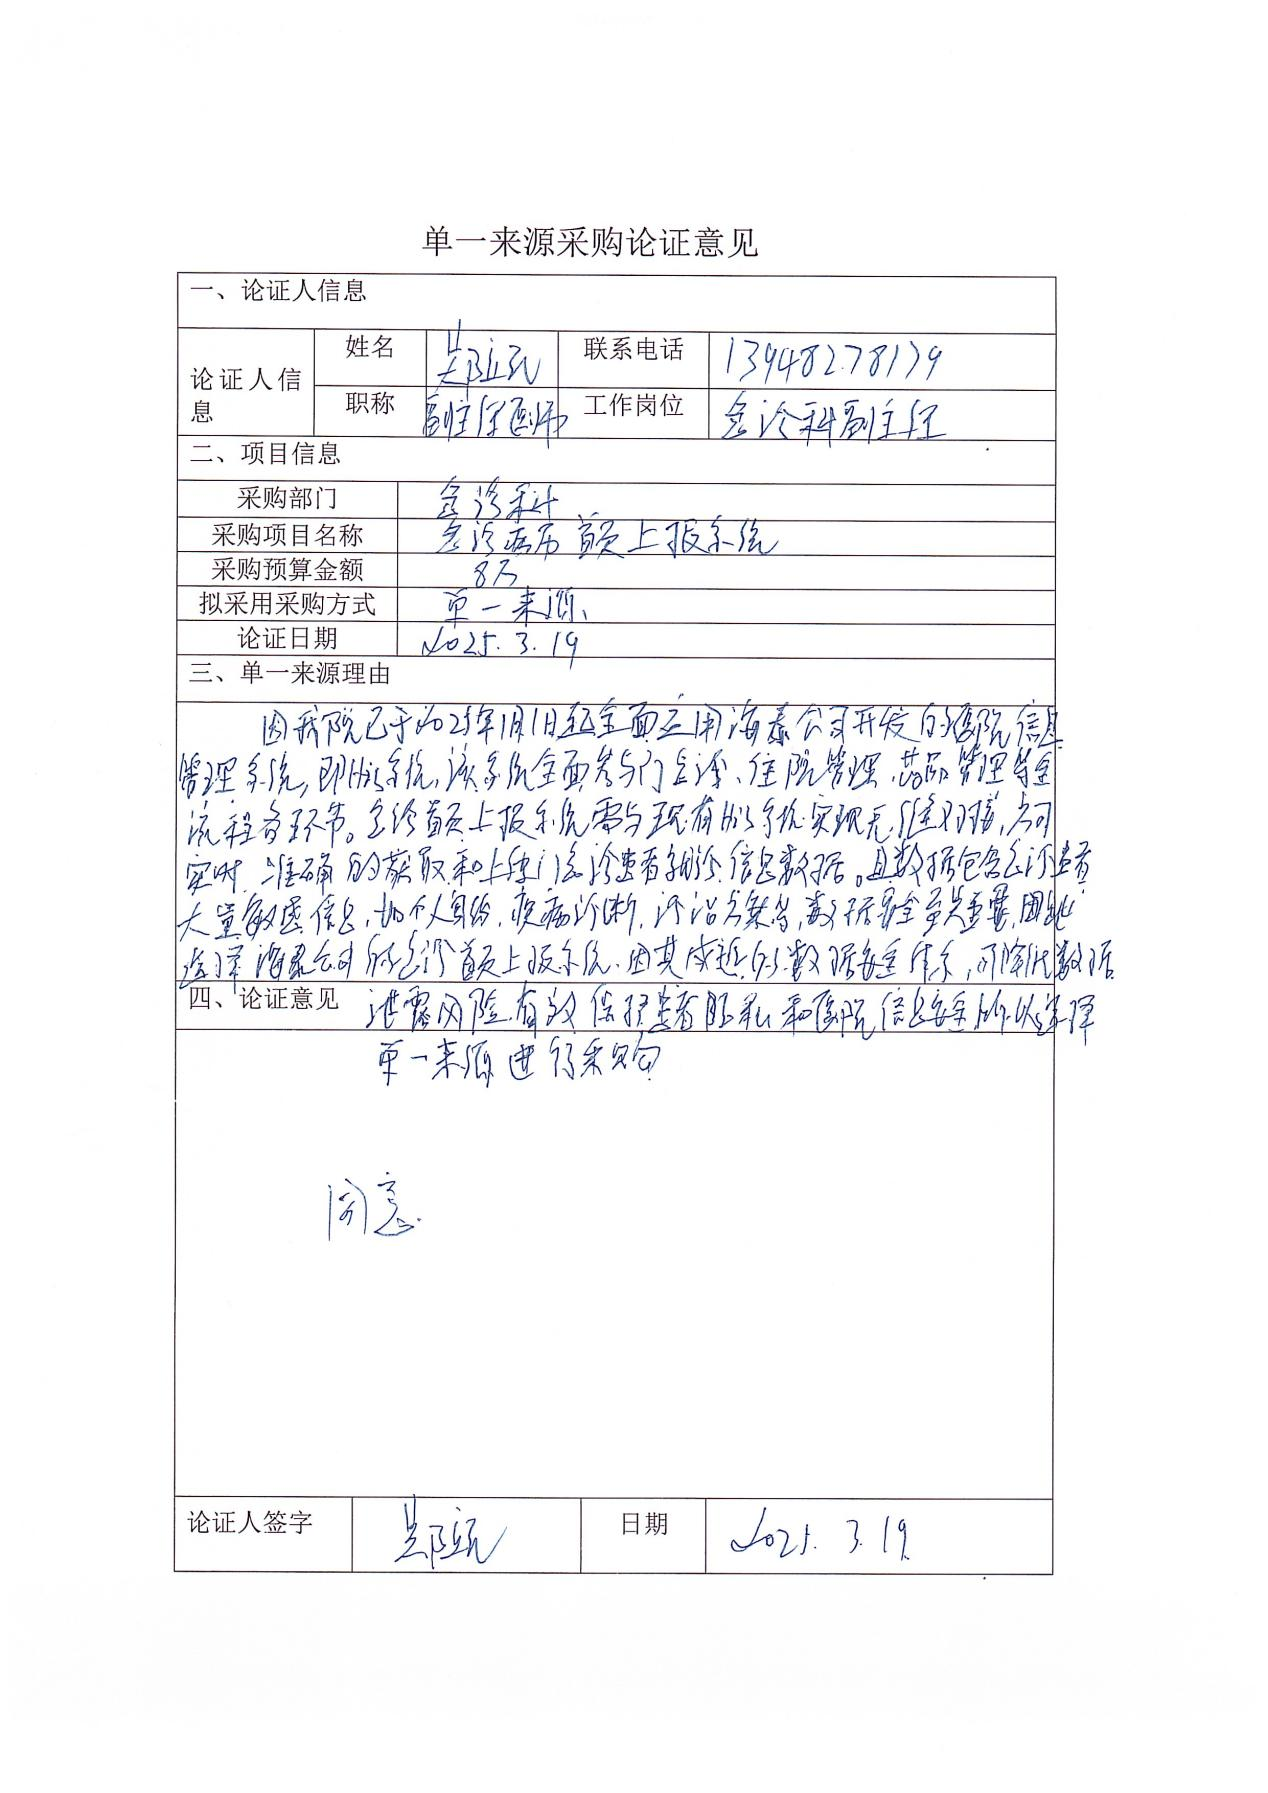 单一来源采购论证意见
一、论证人信息
论证人信息 姓名 联系电话 13948278179
职称 副主任医师 工作岗位 急诊科副主任
二、项目信息
采购部门 急诊科
采购项目名称 急诊病历首页上报系统
采购预算金额 8万
拟采用采购方式 单一来源、
论证日期 2025.3.19
三、单一来源理由
因我院已于2025年1月1日起全面运用海泰公司开发的医院信息
管理系统,即His系统,该系统全面参与门急诊、住院管理、药品管理等全
流程各环节。急诊首页上报系统需与现有His系统实现无缝对接,方可
实时、准确的获取和上传门急诊患者就诊信息数据。且数据包含急诊患者
大量敏感信息,如个人身份,疾病诊断,诊治方案等,数据安全至关重要,因此
选择海泰公司的急诊首页上报系统、因其成熟的数据安全体系,可降低数据
四、论证意见 泄露风险,有效保护患者隐私和医院信息安全所以选择
单一来源进行采购
同意.
论证人签字 日期 2025.3.19